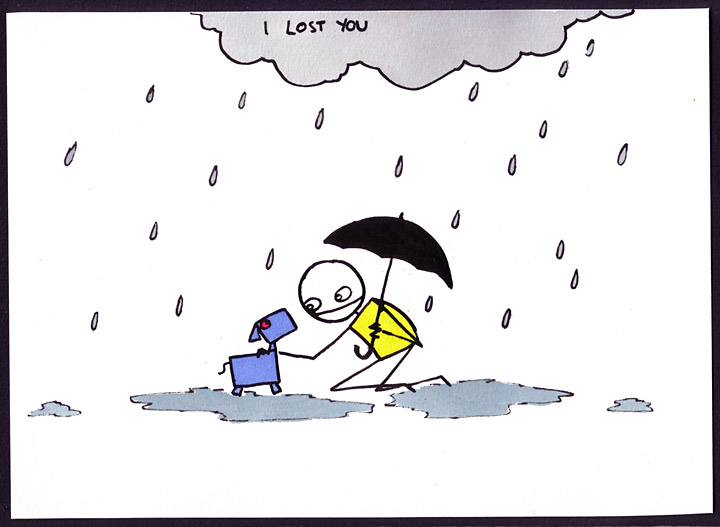 I LOST YOU